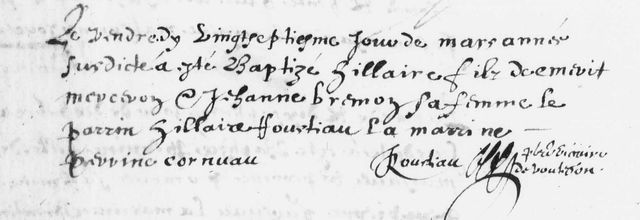 Le vendredy vingtseptiesme Jour de mars année
susdicte a esté Baptizé hillaire filz de emerit
merceron & Jehanne bremon sa femme le
parrin hillaire foustiau la marrine
perrine cornuau Roustiau pbre vicaire
de voultegon